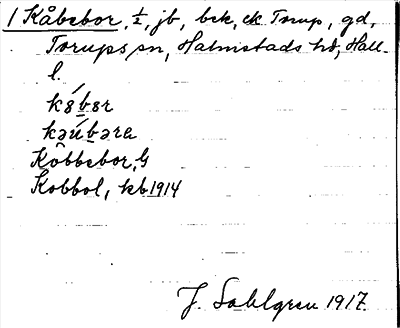 1 Kåbebor, ½, jb, bsk, ek Torup, gd,
Torups sn, Halmstads hd, Hall.
l.
Kôbbebor, G
Kobbol, kb 1914
J. Sahlgren 1917.